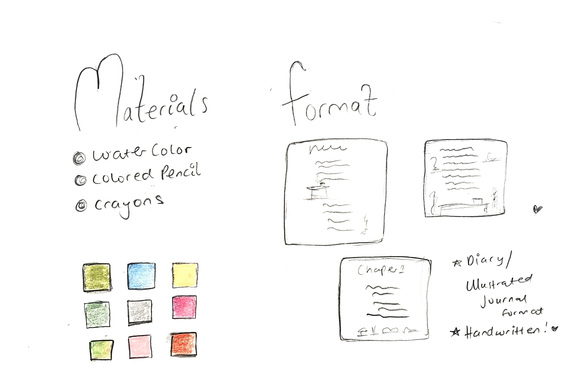 Materials
Water Color
Colored Pencil
Crayons
Format
Chapter 1
★ Diary/
Illustrated
Journal
Format
★ Handwritten!